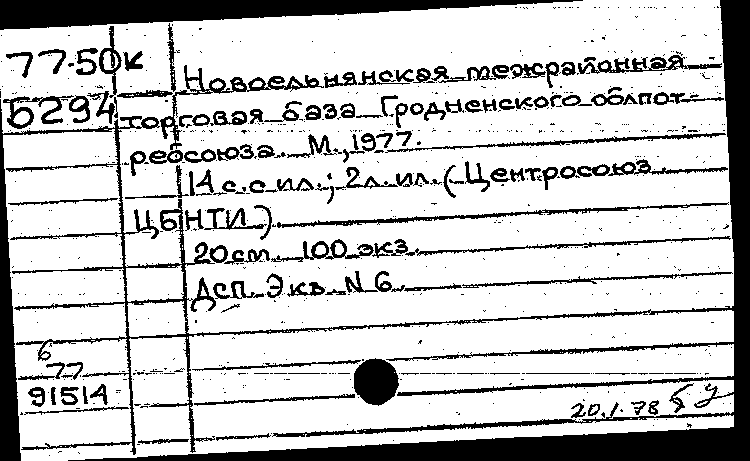 77-50к
Б294
Новоельнянская межрайонная
торговая база Гродненского облпот-
ребсоюза. М., 1977.
14 с. с ил.; 2л. ил. (Центросоюз.
ЦБНТИ).
20 см. 100 экз.
Дсп. Экв. N 6.
6
77
91514
20.1.78